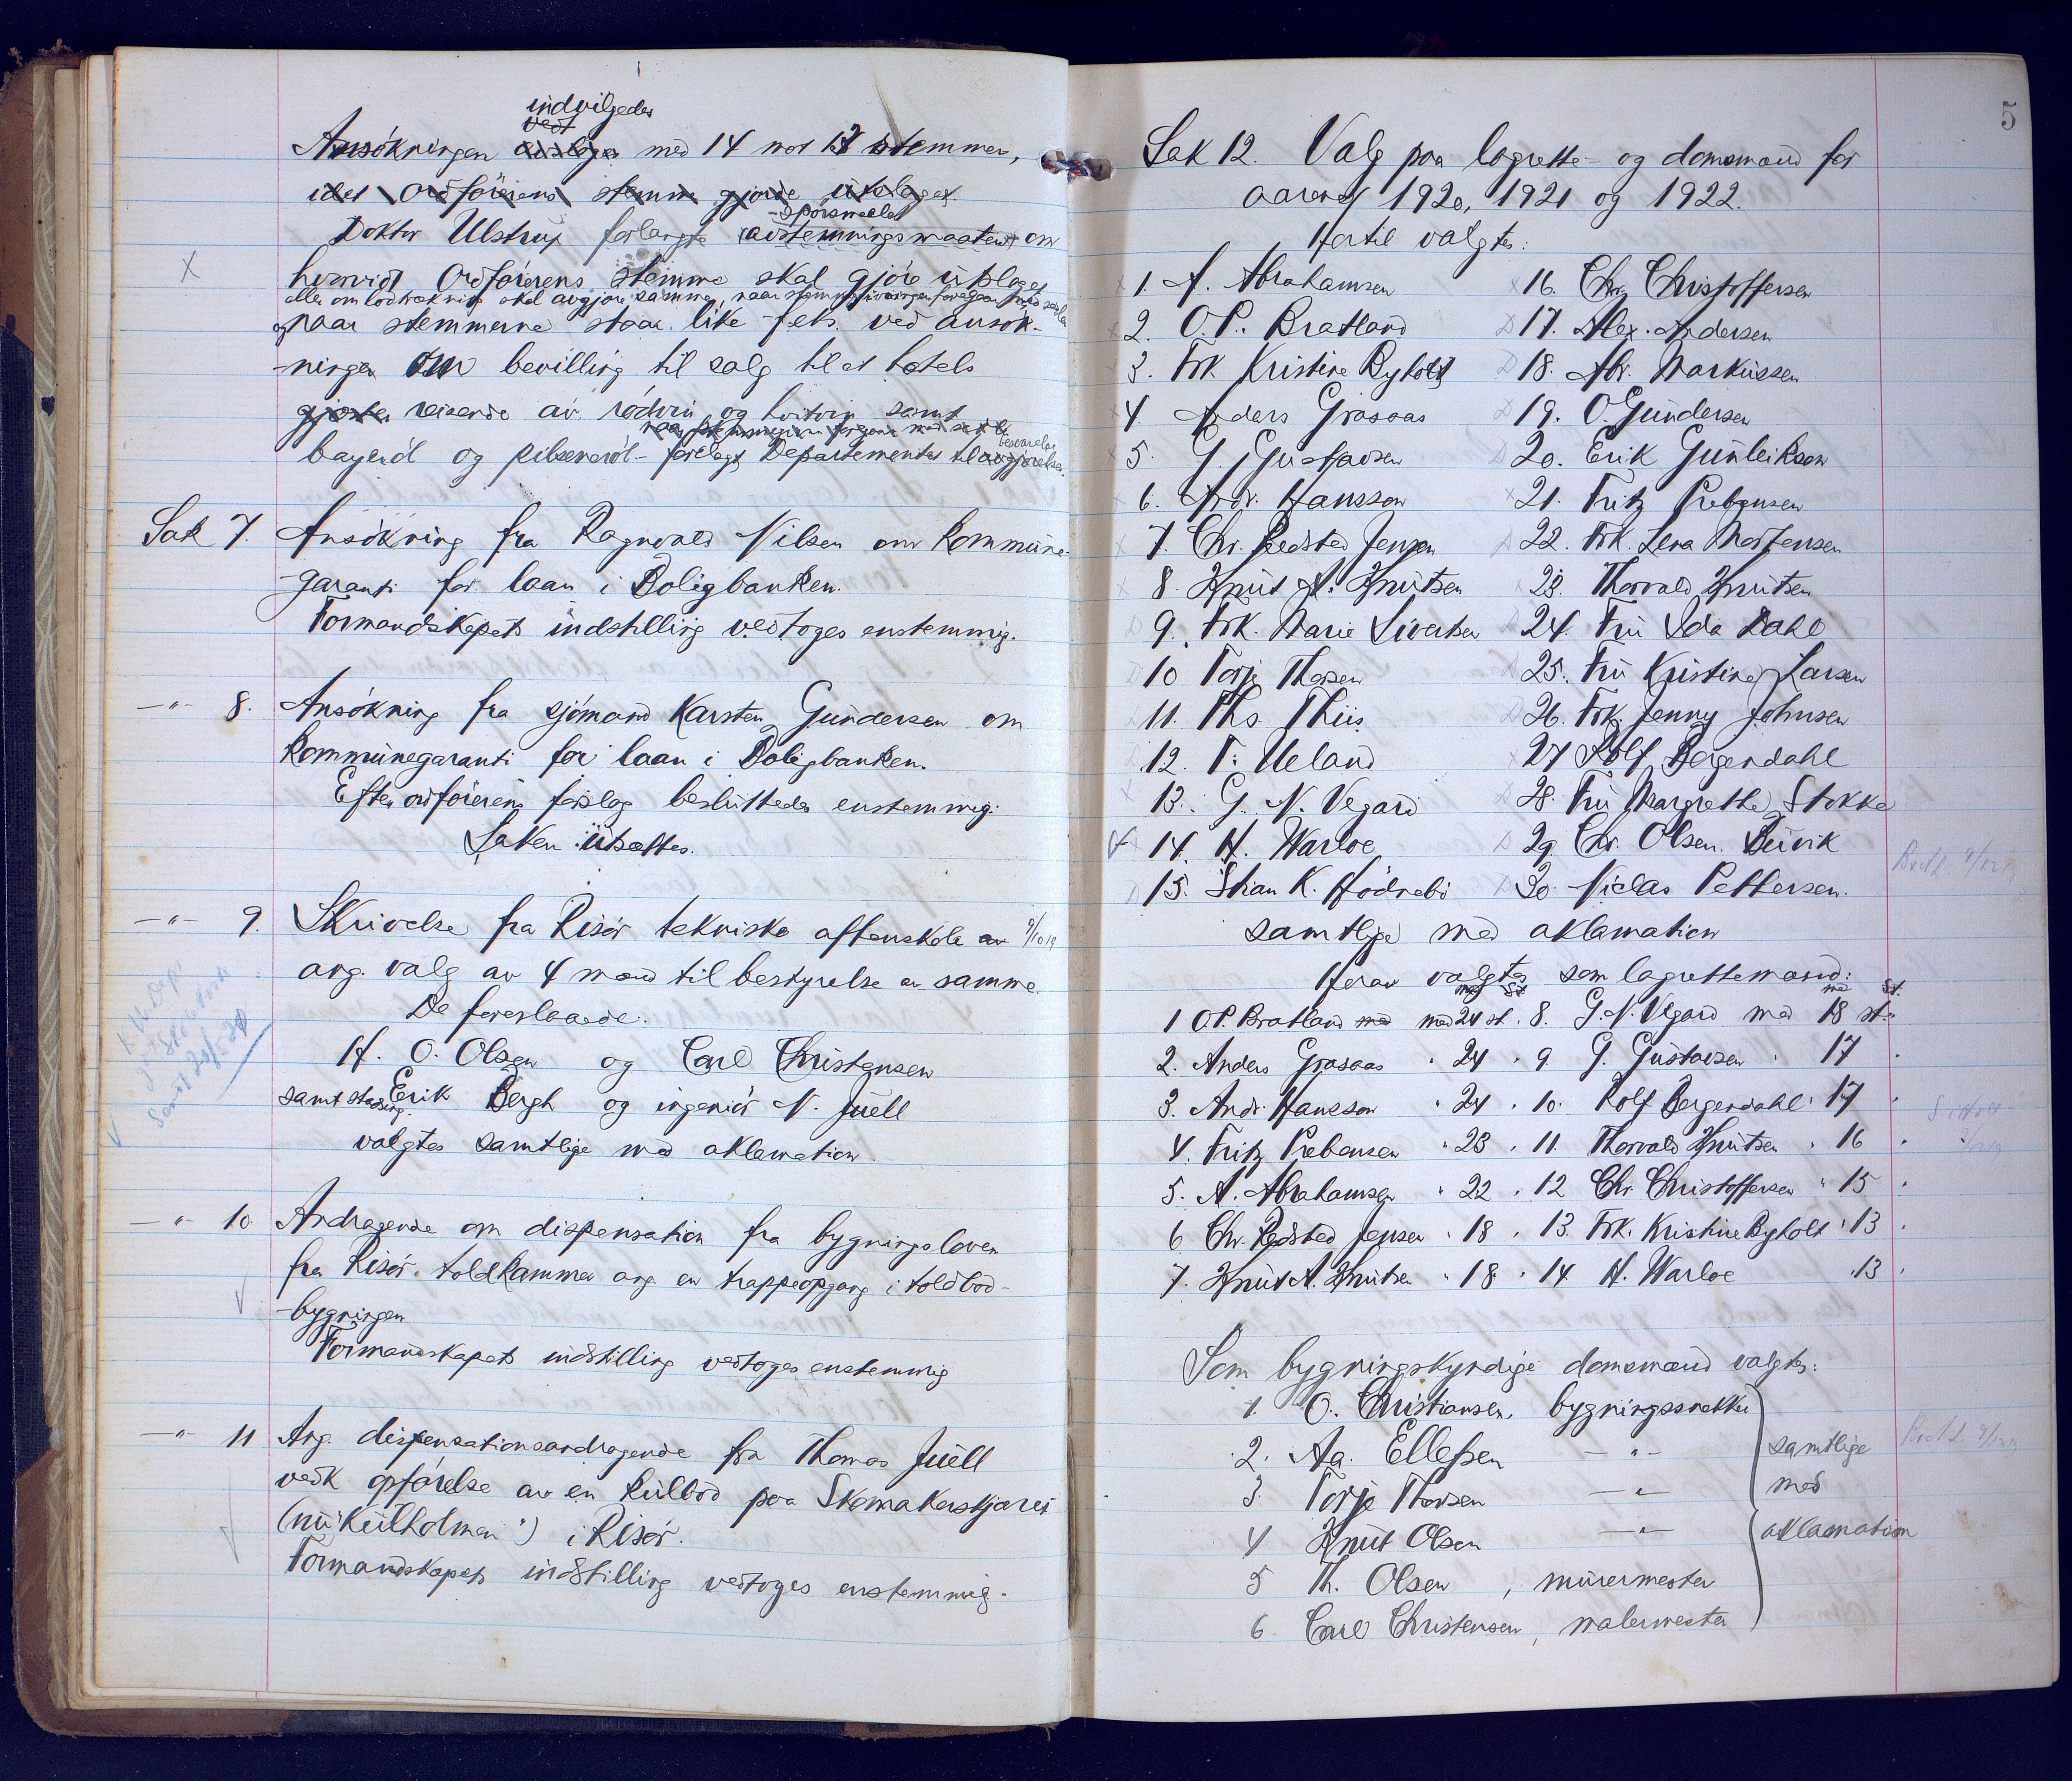 indvilgedes
Ansökningen med 14 mot 12 stemmer,
idet Ordförerens stemme gjorde utslaget.
-spörsmaalet
Doktor Ulstrup forlangte avstemningsmaaten om
hvorvidt Ordförerens stemme skal gjöre utslaget
eller om lodtrækning skal avgjöre samme, naar stemmegivningen foregaar med sedler
og naar stemmerne staar like f.eks. ved ansök-
ninger om bevilling til salg til et hotels
gjester reisende av rödvin og hvitvin samt
besvarelse
bayeröl og pilseneröl - forelagt Departementet til avgjörelse.
Sak 7. Ansökning fra Ragnvald Nilsen om kommune-
garanti for laan i Boligbanken.
Formandskapets indstilling vedtoges enstemmig.
—"— 8. Ansökning fra sjömand Karsten Gundersen om
kommunegaranti for laan i Boligbanken.
Efter ordförerens forslag besluttedes enstemmig:
Saken utsættes.
—"— 9. Skrivelse fra Risör tekniske aftenskole av 9/10 19
ang. valg av 4 mænd til bestyrelse av samme.
De foreslaaede:
H. O. Olsen og Carl Christensen
samt stadsing. Erik Bergh og ingeniör N. Juell
valgtes samtlige med aklamation.
—"— 10 Andragende om dispensation fra bygningsloven
fra Risör toldkammer ang. en trappeopgang i toldbod-
bygningen
Formandskapets indstilling vedtoges enstemmig
—"— 11 Ang. dispensationsandragende fra Thomas Juell
vedk opförelse av en kulbod paa Skomakerskjæret
(nu "Kulholmen") i Risör.
Formandskapets indstilling vedtoges enstemmig.
5
Sak 12. Valg paa lagrette- og domsmænd for
aarene 1920, 1921 og 1922.
Hertil valgtes:
1. A. Abrahamsen 16. Chr. Christoffersen
2. O.P. Bratland 17. Alex. Andersen
3. Frk. Kristine Byholt 18. Abr. Markussen
4. Anders Grasaas 19. O. Gundersen
5. G. Gustavsen 20. Erik Gunleikson
6. Andr. Hansson 21. Fritz Prebensen
7. Chr. Redsted Jensen 22. Frk. Lena Mortensen
8. Knut A. Knutsen 23. Thorvald Knutsen
9. Frk. Marie Sivertsen 24. Fru Ida Dahl
10 Torje Thorsen 25. Fru Kristine Larsen
11. Ths. Thiis 26. Frk. Jenny Johnsen
12. T. Ueland 27 Rolf Bergendahl
13. G. N. Vegard 28. Fru Margrethe Stokke
14. H. Warloe 29. Chr. Olsen Buvik
15. Johan K. Hödnebö 30. Niclas Pettersen.
samtlige med aklamation
Herav valgtes som lagrettemænd:
1 O.P. Bratland med 24 st. 8. G.N. Vegard med 18 st.
2. Anders Grasaas " 24 " 9. G. Gustavsen " 17 "
3. Andr. Hansson " 24 " 10. Rolf Bergendahl " 17 "
4. Fritz Prebensen " 23 " 11. Thorvald Knutsen " 16 "
5. A. Abrahamsen " 22 " 12 Chr. Christoffersen " 15 "
6 Chr. Redsted Jensen " 18 " 13. Frk. Kristine Byholt " 13 "
7. Knut A. Knutsen " 18 " 14. H. Warloe " 13 "
Som bygningskyndige domsmænd valgtes:
1. O. Christiansen, bygningssnekker
2. Aa. Ellefsen —"— samtlige
3. Torje Thorsen —"— med
4 Knut Olsen —"— aklamation
5 Th. Olsen, murermester
6 Carl Christensen, malermester